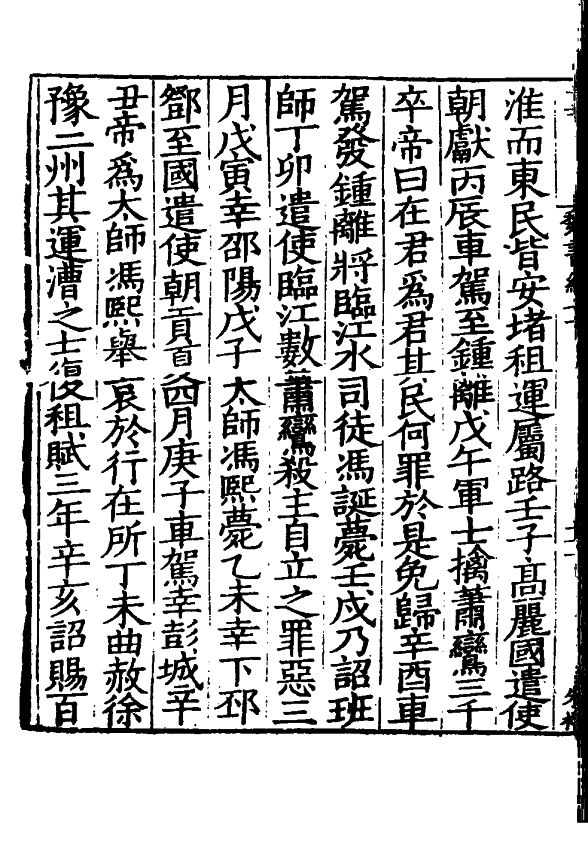 淮而東民皆安堵租運屬路壬子高麗國遣使
朝獻丙辰車駕至鍾離戊午軍士擒蕭鸞三千
卒帝曰在君爲君其民何罪於是免歸辛酉車
駕發鍾離將臨江水司徒馮誕薨壬戌乃詔班
師丁卯遣使臨江數蕭鸞殺主自立之罪惡三
月戊寅幸邵陽戊子太師馮熙薨乙未幸下邳
鄧至國遣使朝貢夏四月庚子車駕幸彭城辛
丑帝爲太師馮熙舉哀於行在所丁未曲赦徐
豫二州其運漕之士復租賦三年辛亥詔賜百